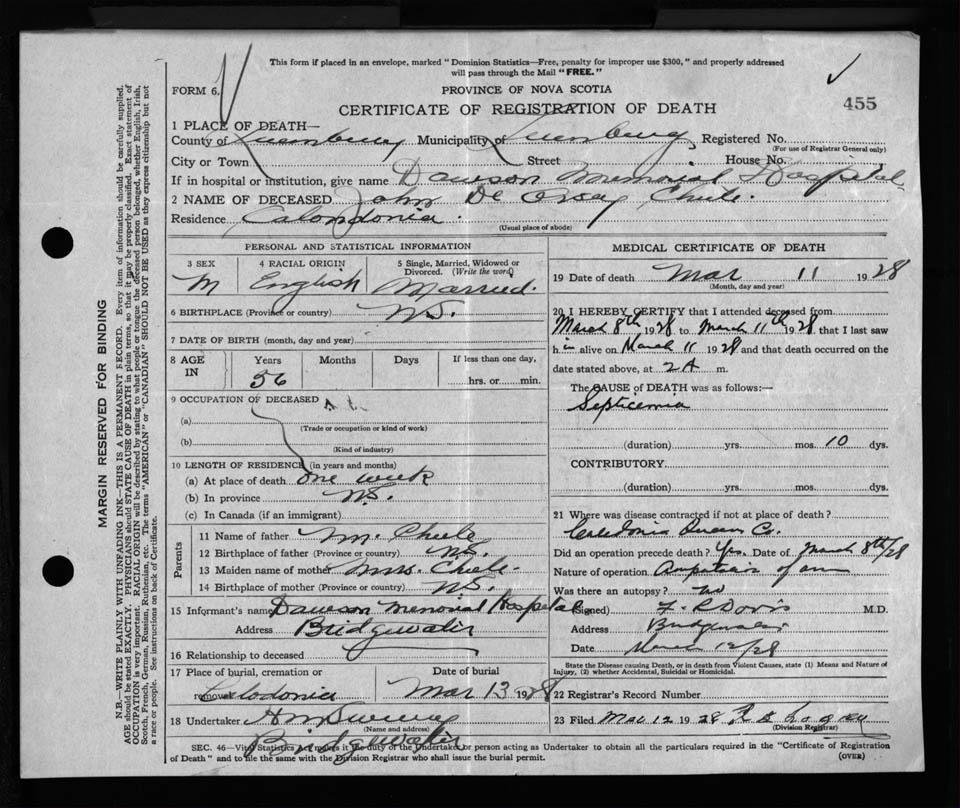 This form if placed in an envelope, marked "Dominion Statistics—Free, penalty for improper use $300," and properly addressed
will pass through the Mail "FREE."
FORM 6.
PROVINCE OF NOVA SCOTIA
CERTIFICATE OF REGISTRATION OF DEATH
455
1 PLACE OF DEATH—
County of Lunenburg Municipality of Lunenburg Registered No.
(For use of Registrar General only)
City or Town Street House No.
If in hospital or institution, give name Dawson Memorial Hospital
2 NAME OF DECEASED John De
Residence Calondonia
(Usual place of abode)
PERSONAL AND STATISTICAL INFORMATION
3 SEX 4 RACIAL ORIGIN 5 Single, Married, Widowed or Divorced. (Write the word)
M English Married.
6 BIRTHPLACE (Province or country) N.S.
7 DATE OF BIRTH (month, day and year)
8 AGE IN Years Months Days If less than one day,
56 hrs. or min.
9 OCCUPATION OF DECEASED
(a)
(Trade or occupation or kind of work)
(b)
(Kind of industry)
10 LENGTH OF RESIDENCE (in years and months)
(a) At place of death one week
(b) In province N.S.
(c) In Canada (if an immigrant)
Parents
11 Name of father M.
12 Birthplace of father (Province or country) N.S.
13 Maiden name of mother Mrs.
14 Birthplace of mother (Province or country) N.S.
15 Informant's name Dawson Memorial Hospital
Address Bridgewater
16 Relationship to deceased
17 Place of burial, cremation or removal Date of burial
Calodonia Mar 13 1928
18 Undertaker
(Name and address)
Bridgewater
MEDICAL CERTIFICATE OF DEATH
19 Date of death Mar 11 1928
(Month, day and year)
20 I HEREBY CERTIFY that I attended deceased from
March 8th 1928 to March 11th 1928 that I last saw
h im alive on March 11 1928 and that death occurred on the
date stated above, at 2 A m.
The CAUSE of DEATH was as follows:—
Septicemia
(duration) yrs. mos. 10 dys.
CONTRIBUTORY
(duration) yrs. mos. dys.
21 Where was disease contracted if not at place of death?
Caledonia Queens C.
Did an operation precede death? Yes. Date of March 8th/28
Nature of operation Amputation of arm
Was there an autopsy? no
(Signed) F. R Davis M.D.
Address Bridgewater
Date March 12/28
State the Disease causing Death, or in death from Violent Causes, state (1) Means and Nature of
Injury, (2) whether Accidental, Suicidal or Homicidal.
22 Registrar's Record Number
23 Filed Mar 12 1928
(Division Registrar)
SEC. 46—Vital Statistics Act makes it the duty of the Undertaker or person acting as Undertaker to obtain all the particulars required in the "Certificate of Registration
of Death" and to file the same with the Division Registrar who shall issue the burial permit.
(OVER)
MARGIN RESERVED FOR BINDING
N.B.—WRITE PLAINLY WITH UNFADING INK—THIS IS A PERMANENT RECORD. Every item of information should be carefully supplied.
AGE should be stated EXACTLY. PHYSICIANS should STATE CAUSE OF DEATH in plain terms, so that it may be properly classified. Exact statement of
OCCUPATION is very important. RACIAL ORIGIN will be described by stating to what people or tongue the deceased person belonged, whether English, Irish,
Scotch, French, German, Russian, Ruthenian, etc. The terms "AMERICAN" or "CANADIAN" SHOULD NOT BE USED as they express citizenship but not
a race or people. See instructions on back of Certificate.